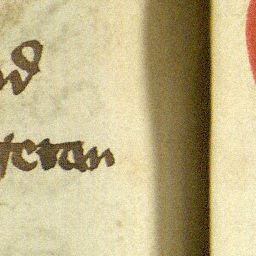 nd
getan